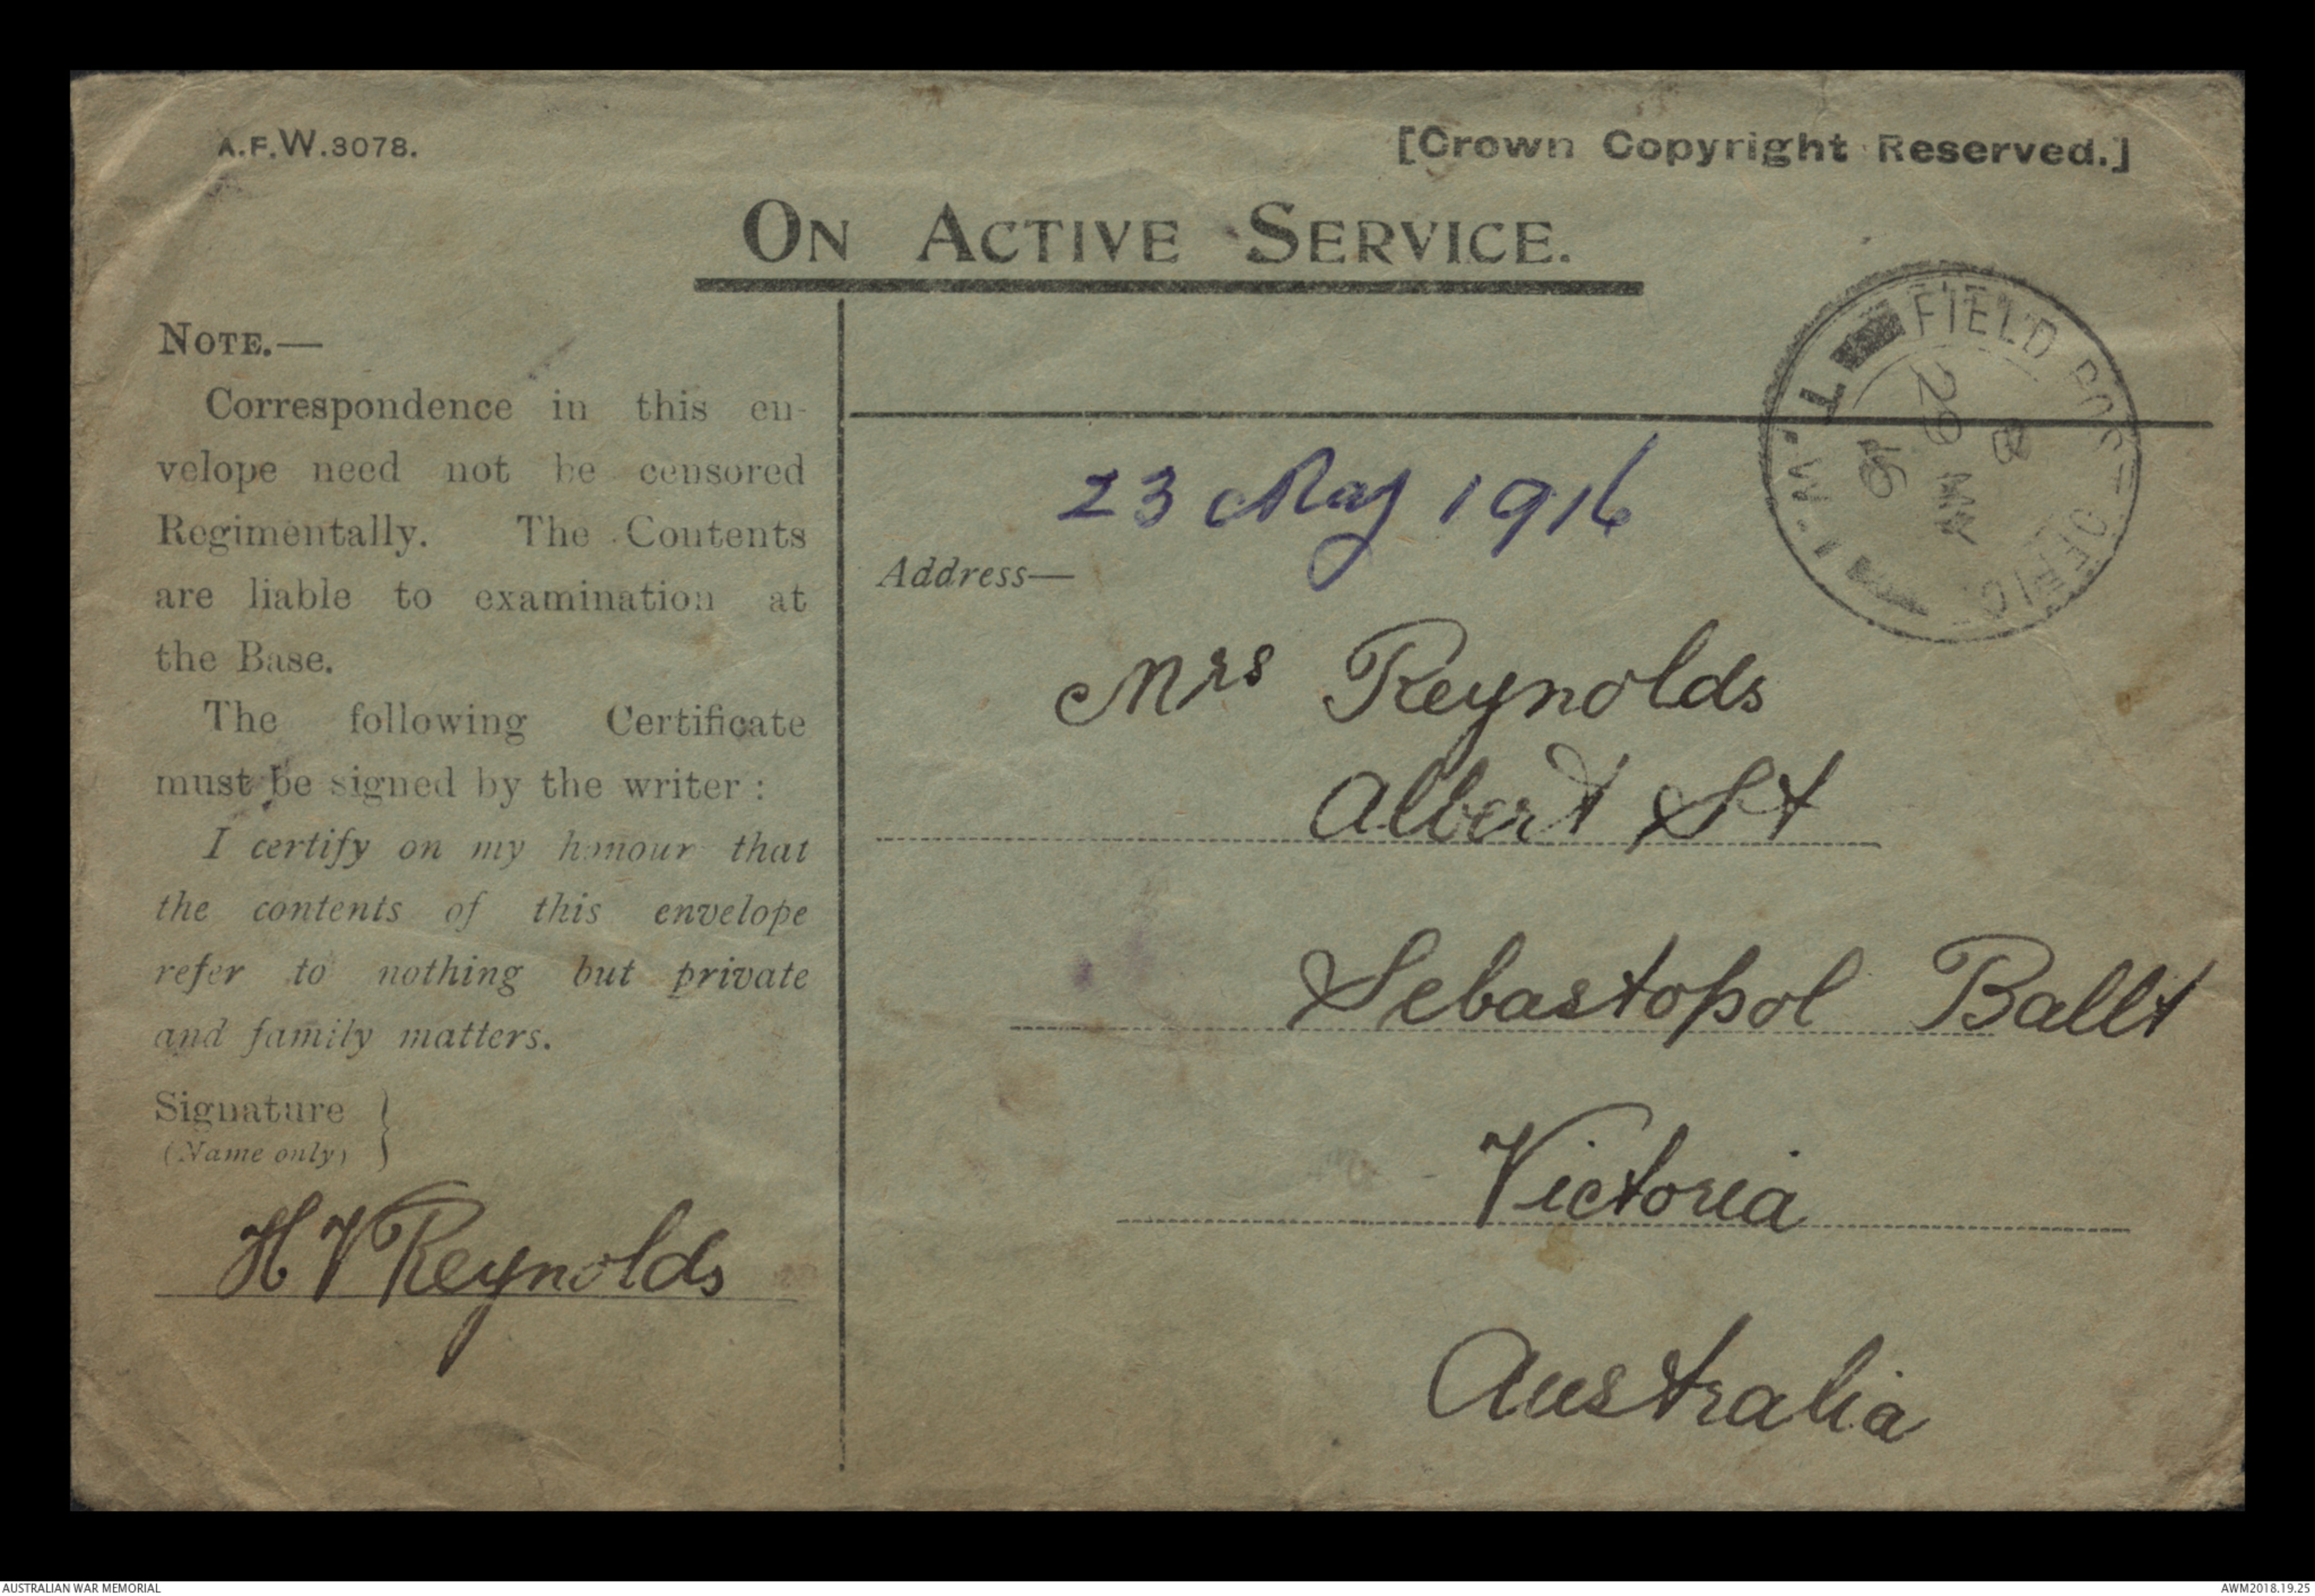 A.F.W.3078.
[Crown Copyright Reserved.]
ON ACTIVE SERVICE.
NOTE.—
Correspondence in this en-
velope need not be censored
Regimentally. The Contents
are liable to examination at
the Base.
The following Certificate
must be signed by the writer :
I certify on my honour that
the contents of this envelope
refer to nothing but private
and family matters.
Signature
(Name only)
H V Reynolds
FIELD POST OFFICE
B
29 MY
16
23 May 1916
Address—
Mrs Reynolds
Albert St
Sebastopol Ballt
Victoria
Australia
AUSTRALIAN WAR MEMORIAL
AWM2018.19.25